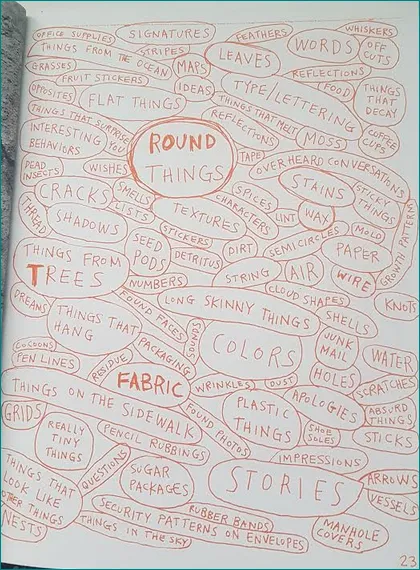 OFFICE SUPPLIES
SIGNATURES
FEATHERS
WHISKERS
THINGS FROM THE OCEAN
STRIPES
LEAVES
WORDS
OFF
CUTS
GRASSES
MAPS
REFLECTIONS
FRUIT STICKERS
IDEAS
TYPE/LETTERING
FOOD
THINGS
THAT
DECAY
OPPOSITES
FLAT THINGS
THINGS THAT MELT
THINGS THAT SURPRISE
YOU
REFLECTIONS
MOSS
COFFEE
CUPS
INTERESTING
BEHAVIORS
ROUND
THINGS
TAPE
OVER HEARD CONVERSATIONS
DEAD
INSECTS
WISHES
STAINS
STICKY
THINGS
CRACKS
SMELLS
LISTS
SPICES
CHARACTERS
LINT
WAX
GROWTH PATTERNS
THREAD
SHADOWS
TEXTURES
MOLD
STICKERS
SEMICIRCLES
THINGS FROM
TREES
SEED
PODS
DETRITUS
DIRT
PAPER
NUMBERS
STRING
AIR
WIRE
DREAMS
ROUND FACES
LONG SKINNY THINGS
CLOUD SHAPES
KNOTS
THINGS THAT
HANG
SOUNDS
SHELLS
COCOONS
PACKAGING
COLORS
JUNK
MAIL
WATER
PEN LINES
RESIDUE
HOLES
FABRIC
WRINKLES
DUST
SCRATCHES
THINGS ON THE SIDEWALK
PLASTIC
THINGS
APOLOGIES
ABSURD
THINGS
GRIDS
FOUND PHOTOS
SHOE
SOLES
STICKS
REALLY
TINY
THINGS
PENCIL RUBBINGS
IMPRESSIONS
QUESTIONS
SUGAR
PACKAGES
STORIES
ARROWS
THINGS THAT
LOOK LIKE
OTHER THINGS
VESSELS
RUBBER BANDS
SECURITY PATTERNS ON ENVELOPES
MANHOLE
COVERS
NESTS
THINGS IN THE SKY
23